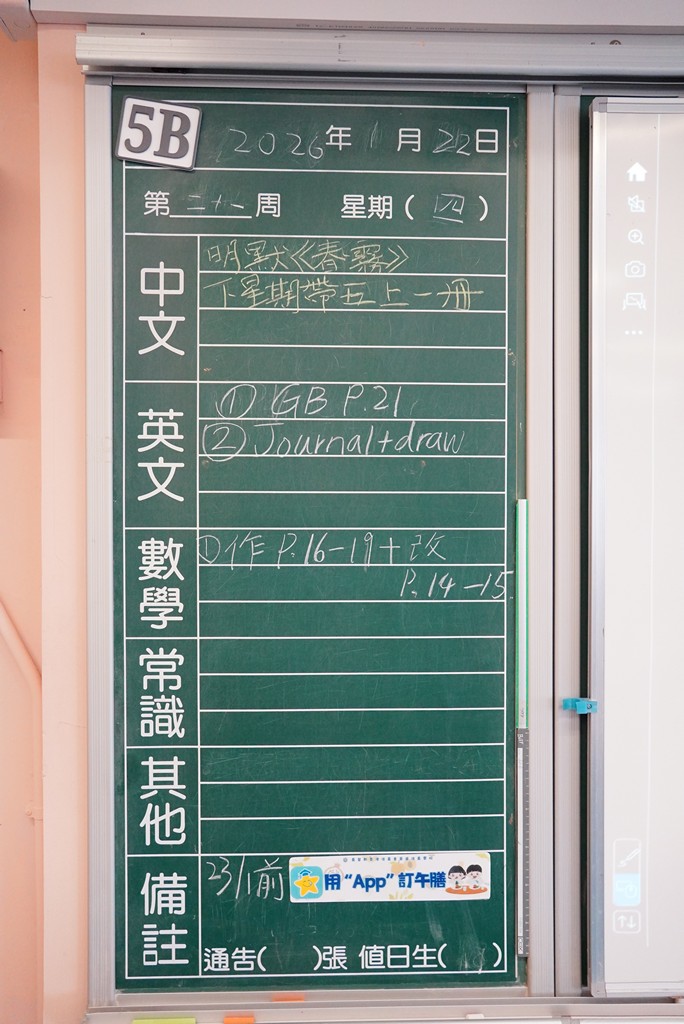 5B
2026年1月22日
第二十一周 星期(四)
中文
明默《春霧》
下星期帶五上一冊
英文
① GB P.21
② Journal+draw
數學
① 作 P.16-19+改
P.14-15
常識
其他
備註
23/1前
用“App”訂午膳
通告( )張 值日生( )